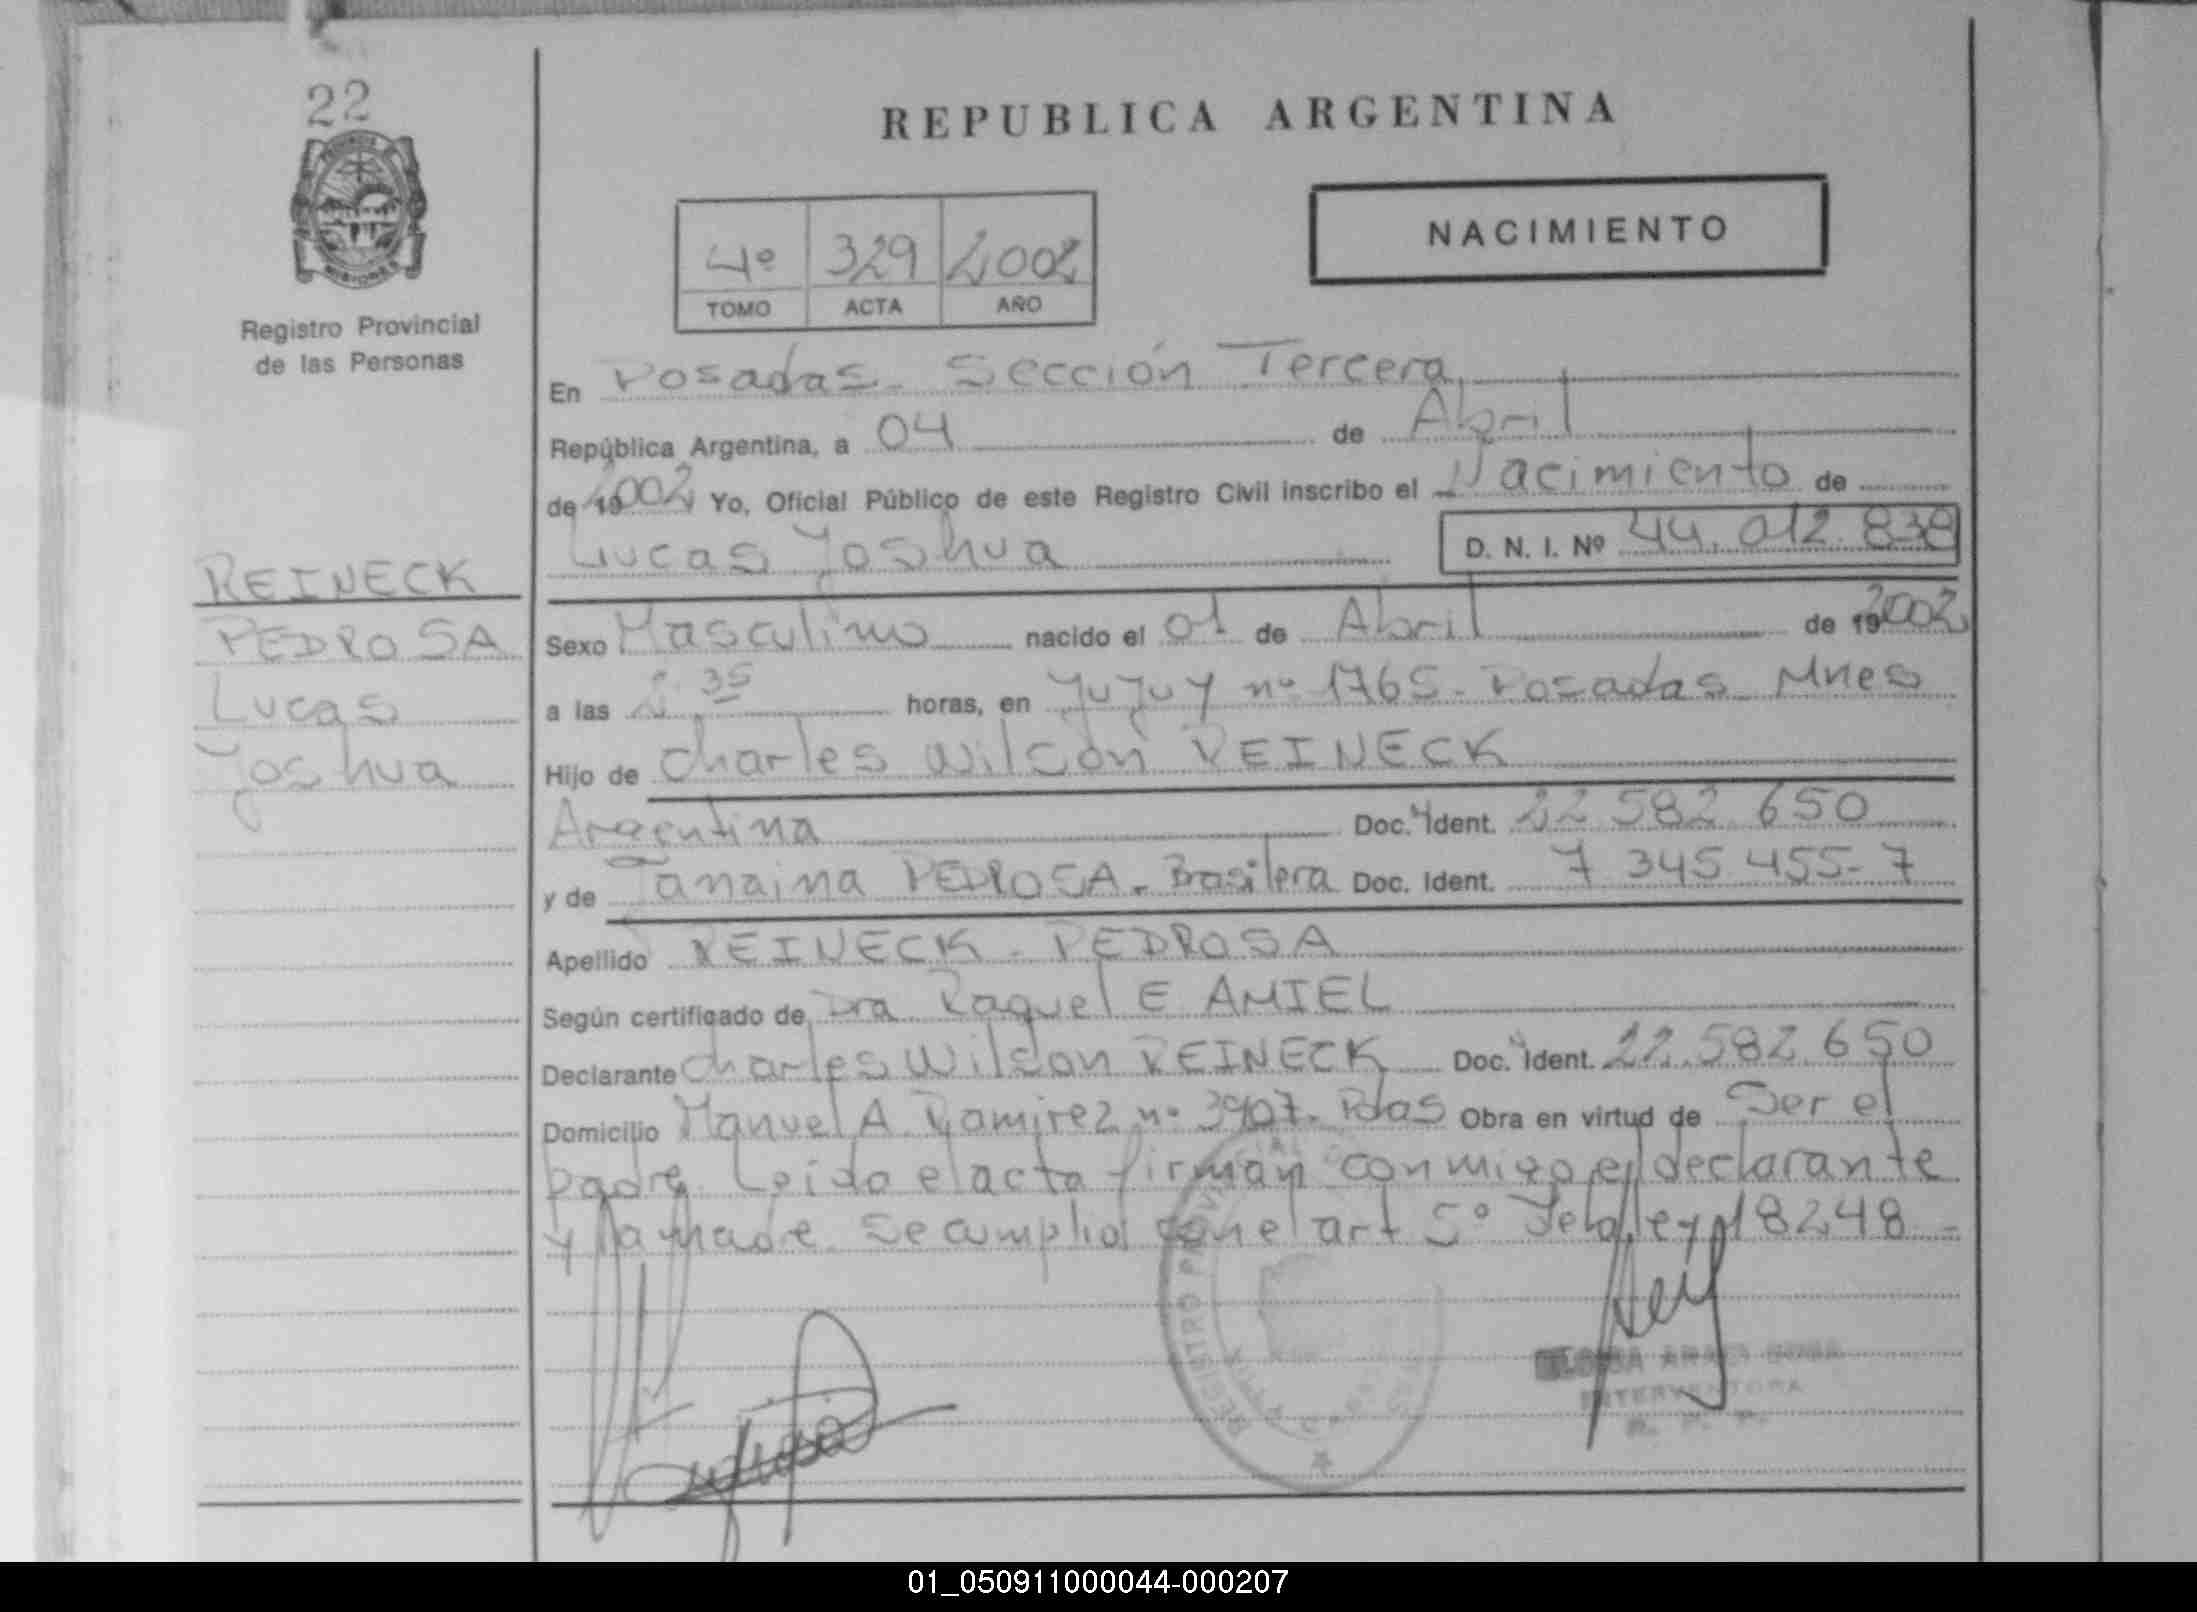 22
REPUBLICA ARGENTINA
NACIMIENTO
4º 329 2002
TOMO ACTA AÑO
Registro Provincial
de las Personas
En Posadas - Sección Tercera
República Argentina, a 04 de Abril
de 19 2002 Yo, Oficial Público de este Registro Civil inscribo el Nacimiento de
Lucas Joshua D. N. I. Nº 44.012.838
REINECK
PEDROSA
Lucas
Joshua
Sexo Masculino nacido el 01 de Abril de 19 2002
a las 2 35 horas, en Jujuy nº 1765 - Posadas Mnes
Hijo de Charles Wilson REINECK
Argentina Doc. Ident. 22 582 650
y de Janaina PEDROSA - Brasilera Doc. Ident. 7 345 455-7
Apellido REINECK - PEDROSA
Según certificado de Dra Raquel E AMIEL
Declarante Charles Wilson REINECK Doc. Ident. 22.582.650
Domicilio Manuel A. Ramirez nº 3907- Pdas Obra en virtud de Ser el
padre. Leida el acta firman conmigo el declarante
y la madre. Se cumplio con el art 5º de la ley 18248 -
REGISTRO PROVINCIAL
INTERVENTORA
01_050911000044-000207